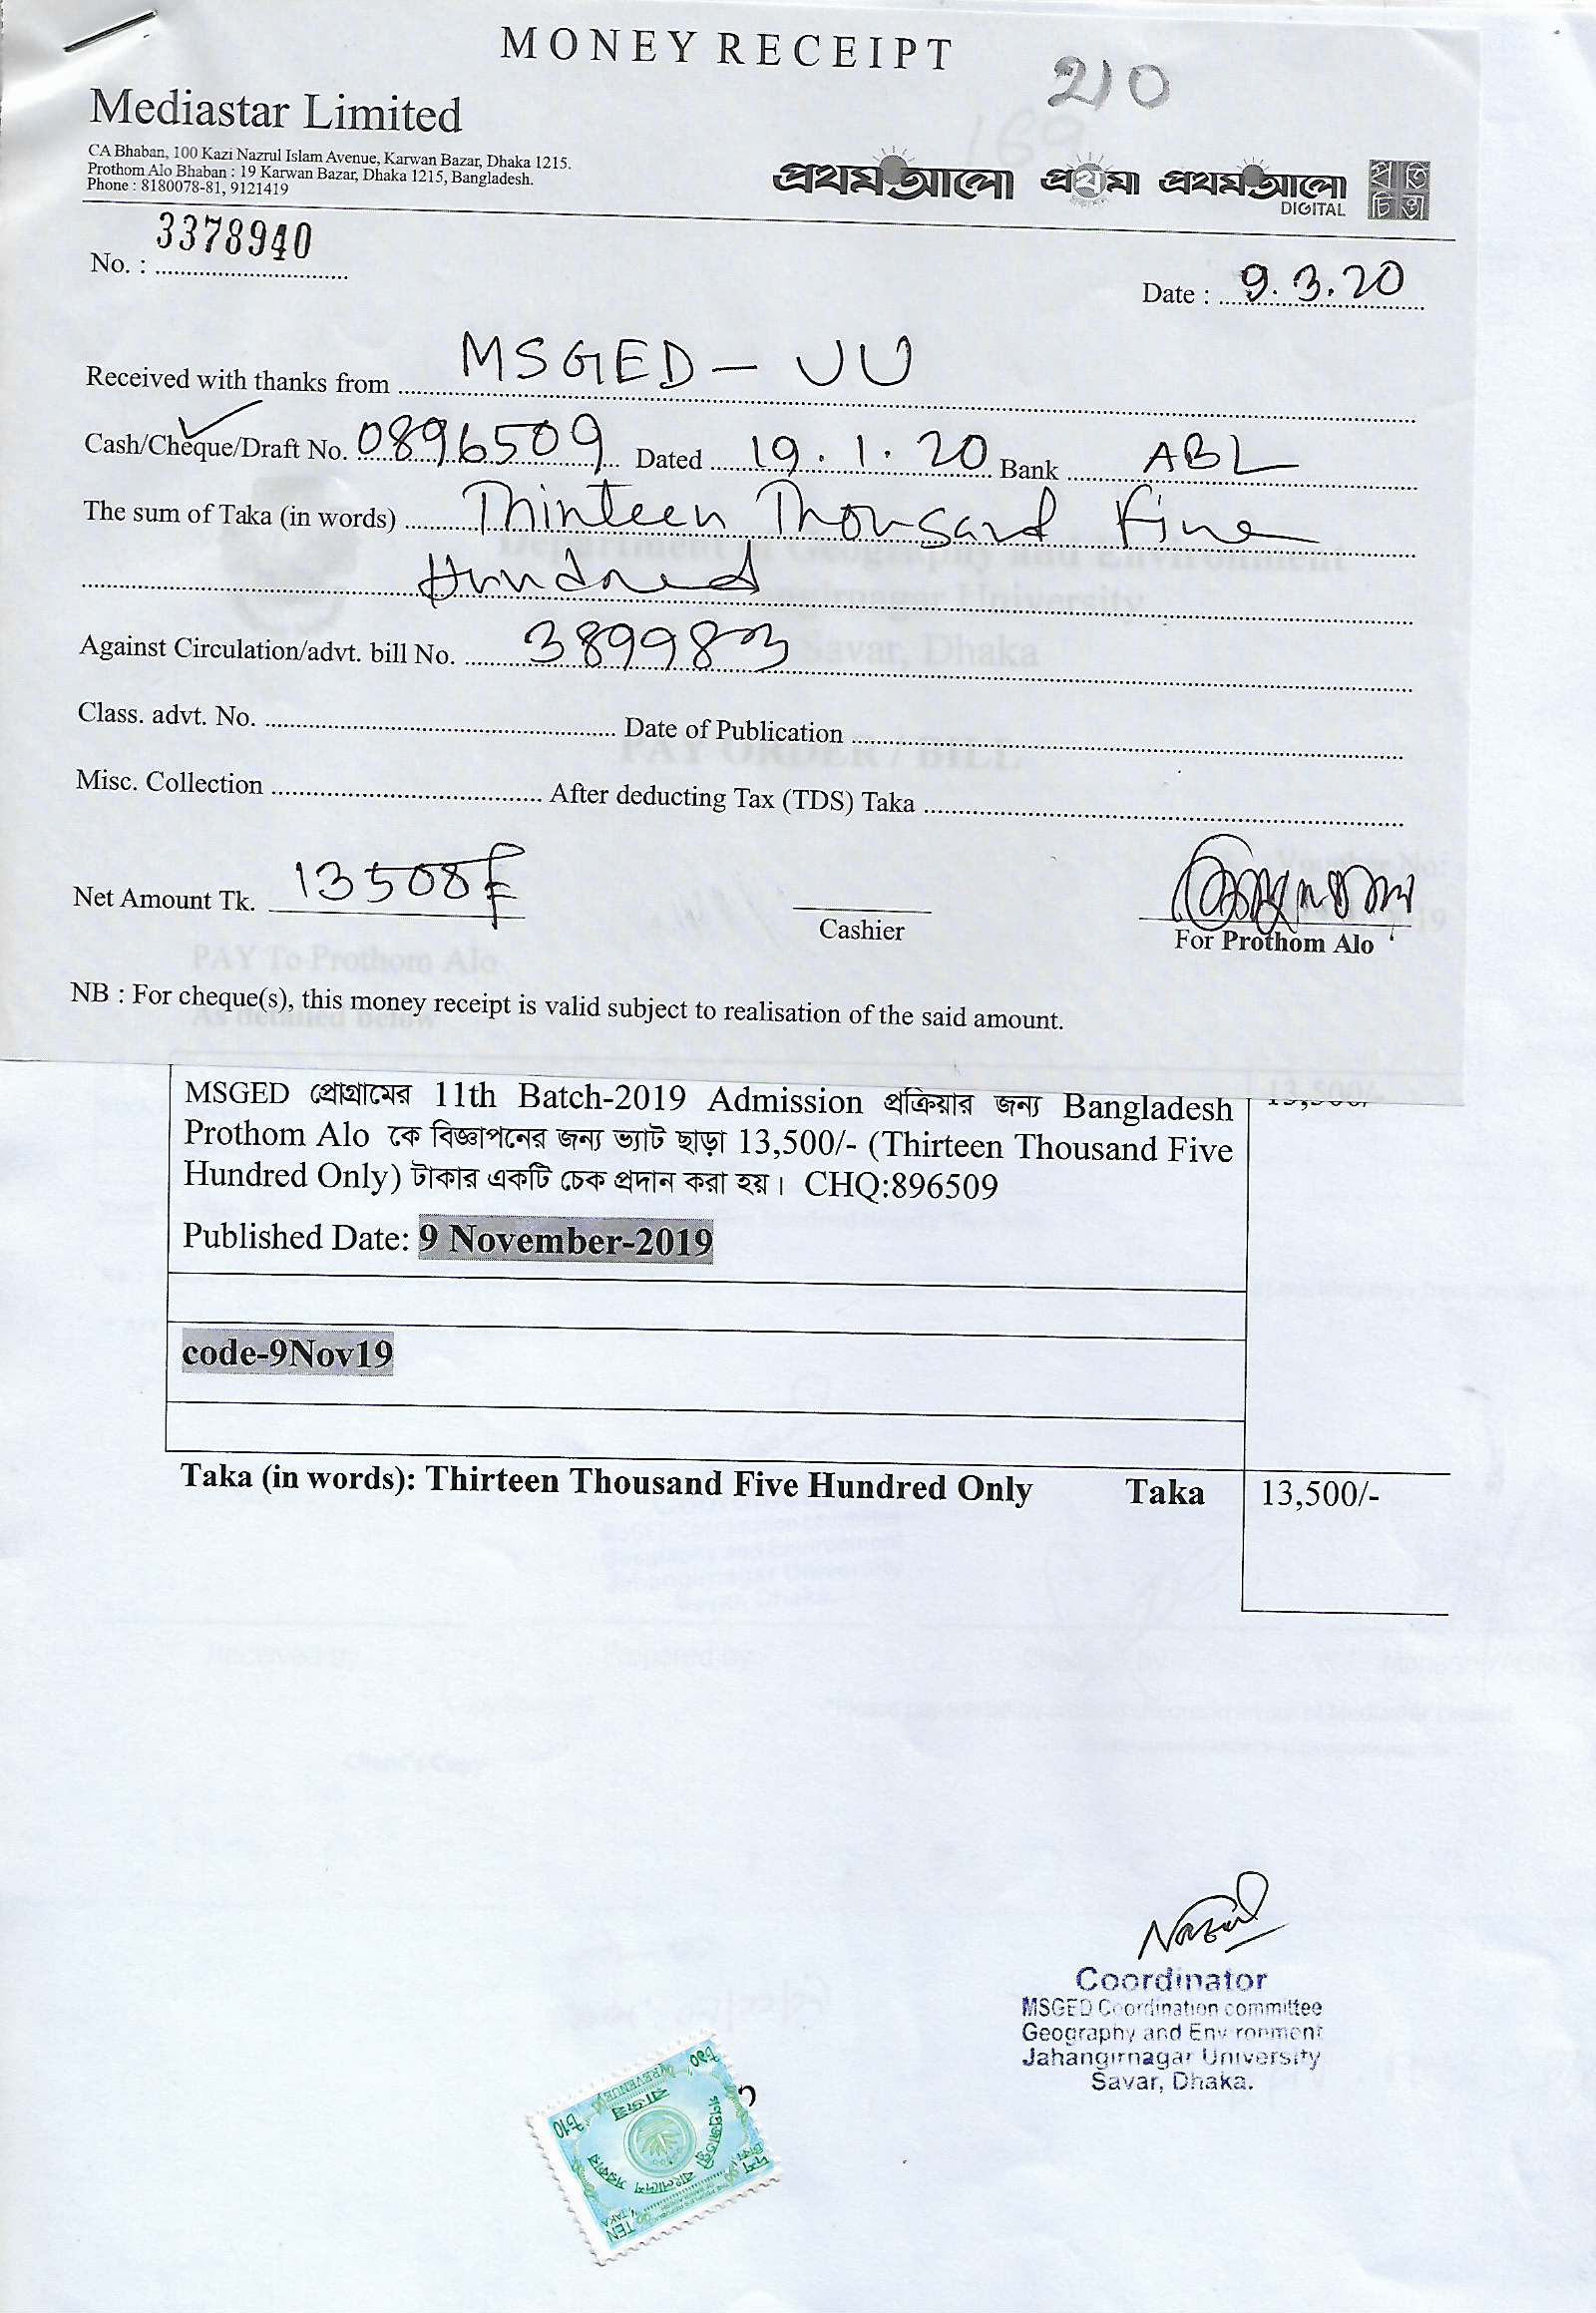 MONEY RECEIPT
210
Mediastar Limited
CA Bhaban, 100 Kazi Nazrul Islam Avenue, Karwan Bazar, Dhaka 1215.
Prothom Alo Bhaban : 19 Karwan Bazar, Dhaka 1215, Bangladesh.
Phone : 8180078-81, 9121419
প্রথম আলো প্রথমা প্রথম আলো DIGITAL প্রতিচিন্তা
No. : 3378940
Date : 9.3.20
Received with thanks from MSGED - JU
Cash/Cheque/Draft No. 0896509 Dated 19.1.20 Bank ABL
The sum of Taka (in words) Thirteen Thousand Five
Hundred
Department of Geography and Environment
Jahangirnagar University
Savar, Dhaka
Against Circulation/advt. bill No. 389983
Class. advt. No. Date of Publication
PAY ORDER / BILL
Misc. Collection After deducting Tax (TDS) Taka
Net Amount Tk. 13500/-
Cashier
For Prothom Alo
PAY To Prothom Alo
As detailed below
NB : For cheque(s), this money receipt is valid subject to realisation of the said amount.
MSGED প্রোগ্রামের 11th Batch-2019 Admission প্রক্রিয়ার জন্য Bangladesh 13,500/-
Prothom Alo কে বিজ্ঞাপনের জন্য ভ্যাট ছাড়া 13,500/- (Thirteen Thousand Five
Hundred Only) টাকার একটি চেক প্রদান করা হয়। CHQ:896509
Published Date: 9 November-2019
code-9Nov19
Taka (in words): Thirteen Thousand Five Hundred Only Taka 13,500/-
Coordinator
MSGED Coordination committee
Geography and Environment
Jahangirnagar University
Savar, Dhaka.
৳১০
REVENUE
রাজস্ব
৳10
গণপ্রজাতন্ত্রী বাংলাদেশ সরকার
দশ টাকা
TEN TAKA